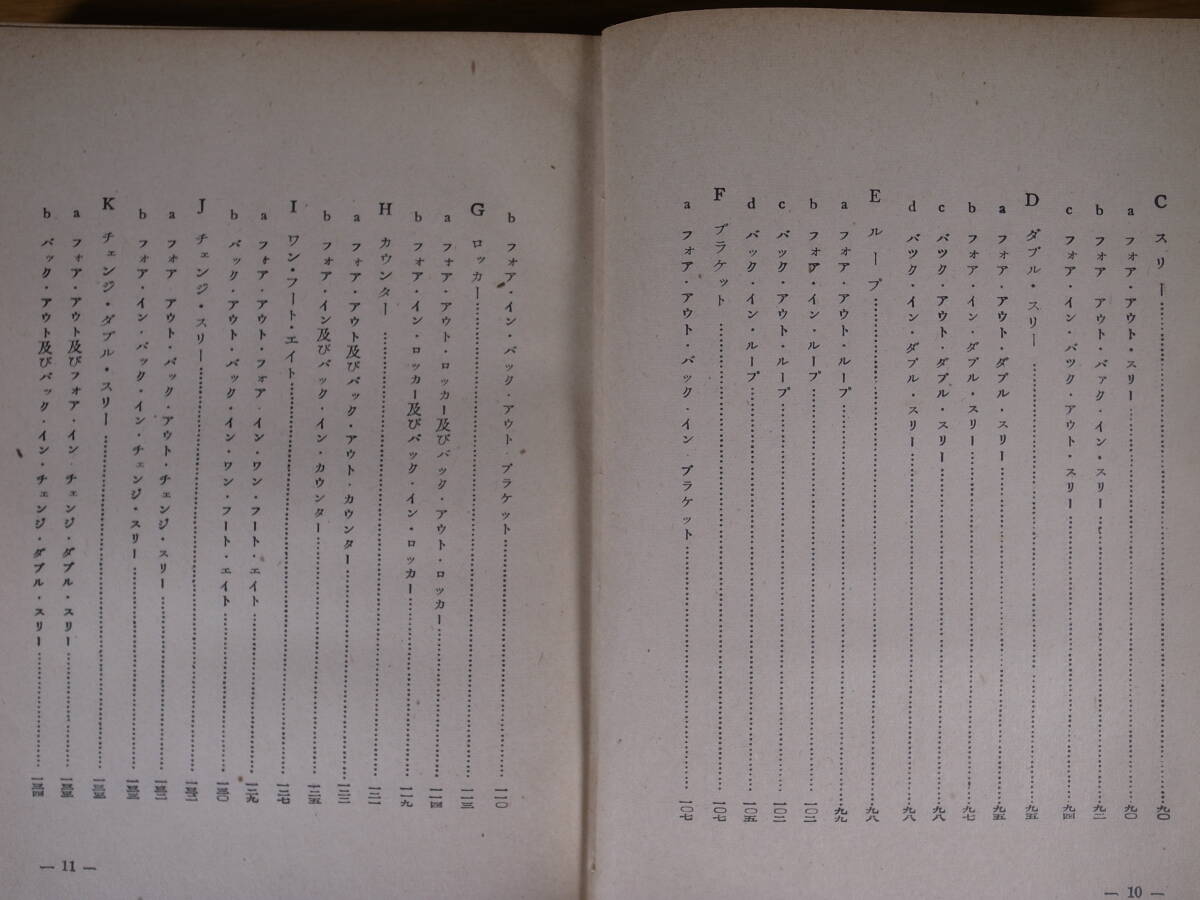 C スリー……九〇
a フォア・アウト・スリー……九〇
b フォア アウト・バック・イン・スリー……九二
c フォア・イン・バック・アウト・スリー……九四
D ダブル・スリー……九五
a フォア・アウト・ダブル・スリー……九五
b フォア・イン・ダブル・スリー……九七
c バック・アウト・ダブル・スリー……九八
d バック・イン・ダブル・スリー……九八
E ループ……九八
a フォア・アウト・ループ……九九
b フォア・イン・ループ……一〇二
c バック・アウト・ループ……一〇二
d バック・イン・ループ……一〇五
F ブラケット……一〇七
a フォア・アウト・バック・イン・ブラケット……一〇七
— 10 —
b フォア・イン・バック・アウト・ブラケット……一一〇
G ロッカー……一一三
a フォア・アウト・ロッカー及びバック・アウト・ロッカー……一一四
b フォア・イン・ロッカー及びバック・イン・ロッカー……一一九
H カウンター……一二一
a フォア・アウト及びバック・アウト・カウンター……一二二
b フォア・イン及びバック・イン・カウンター……一二五
I ワン・フート・エイト……一二七
a フォア・アウト・フォア・イン・ワン・フート・エイト……一二九
b バック・アウト・バック・イン・ワン・フート・エイト……一三〇
J チェンジ・スリー……一三二
a フォア アウト・バック・アウト・チェンジ・スリー……一三二
b フォア・イン・バック・イン・チェンジ・スリー……一三三
K チェンジ・ダブル・スリー……一三五
a フォア・アウト及びフォア・イン チェンジ・ダブル・スリー……
b バック・アウト及びバック・イン・チェンジ・ダブル・スリー……
— 11 —